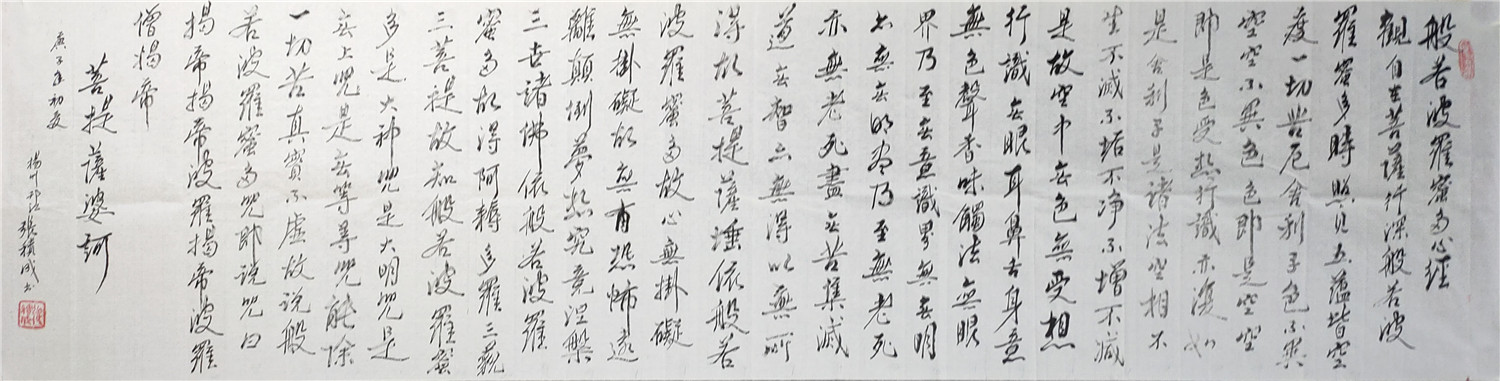 般若波羅蜜多心經
觀自在菩薩行深般若波
羅蜜多時照見五蘊皆空
度一切苦厄舍利子色不異
空空不異色色即是空空
即是色受想行識亦復如
是舍利子是諸法空相不
生不滅不垢不净不增不減
是故空中无色無受想
行識无眼耳鼻舌身意
無色聲香味觸法無眼
界乃至无意識界無无明
亦無无明尽乃至無老死
亦無老死盡无苦集滅
道无智亦無得以無所
得故菩提薩埵依般若
波羅蜜多故心無掛礙
無掛礙故無有恐怖遠
離顛倒夢想究竟涅槃
三世諸佛依般若波羅
蜜多故得阿耨多羅三藐
三菩提故知般若波羅蜜
多是大神咒是大明咒是
无上咒是无等等咒能除
一切苦真實不虛故說般
若波羅蜜多咒即說咒曰
揭帝揭帝波羅揭帝波羅
僧揭帝
菩提薩婆訶
庚子年初夏
揚州 張積成书